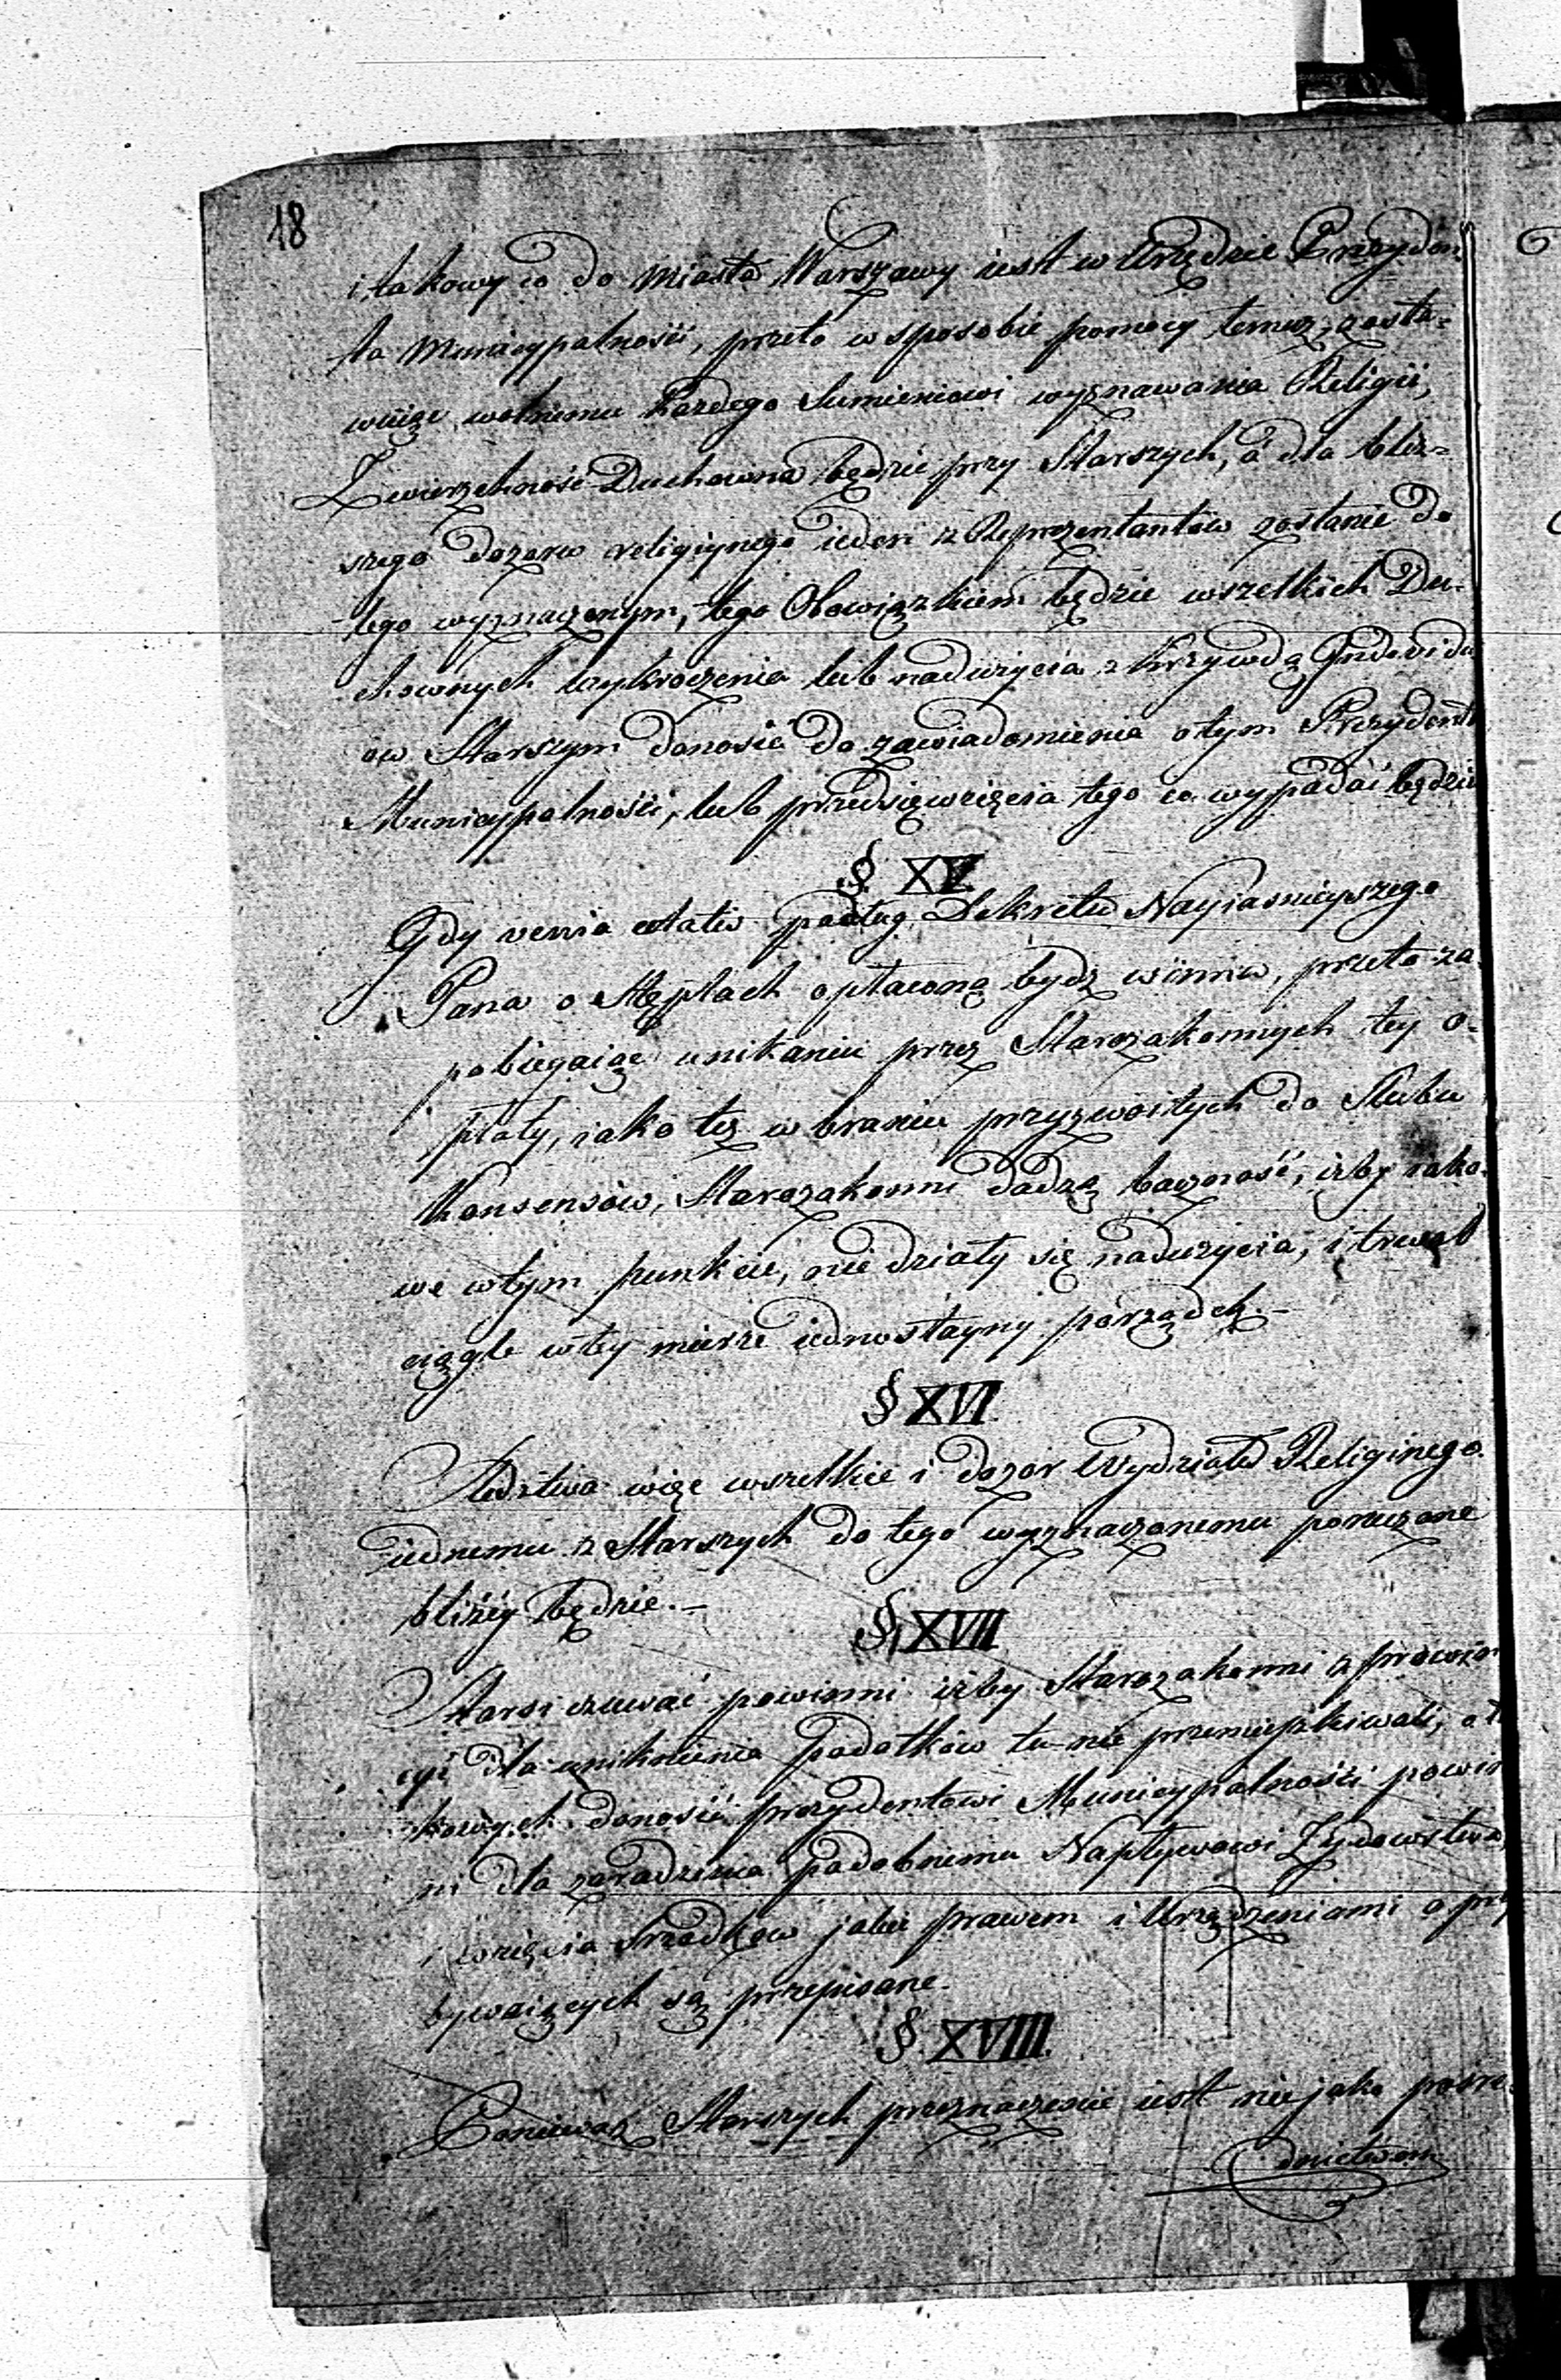 18
i takowy co do Miasta Warszawy iest w Urzędzie Prezyden-
ta Municypalności, przeto w sposobie pomocy temuż, zosta-
wuiąc wolnemu każdego Sumieniowi wyznawania Religii,
Zwierzchność Duchowna będzie przy Starszych, a dla bliż-
szego dozoru religiynego ieden z Reprezentantów zostanie do
tego wyznaczonym, tego Obowiązkiem będzie wszelkich Du-
chownych wykroczenia lub nadużycia z krzywdą Individu
ow Starszym donosić do zawiadomienia o tym Prezydenta
Municypalności, lub przedsięwzięcia tego co wypadać będzie
§. XV.
Gdy venia aetatis podług Dekretu Nayiaśnieyszego
Pana o Stęplach opłaconą bydź winna, przeto za-
pobiegaiąc unikaniu przez Starozakonnych tey o-
płaty, iako też w braniu przyzwoitych do Slubu
Konsensów, Starozakonni dadzą baczność, iżby tako-
we w tym punkcie, nie działy się nadużycia, i trwał
ciągle w tey mierze iednostayny porządek.-
§ XVI.
Sledztwa więc wszelkie i dozor Wydziału Religinego
iednemu z Starszych do tego wyznaczonemu poruczone
bliżey będzie.-
§ XVII
Starsi czuwać powinni iżby Starozakonni z prowin
cyi dla uniknienia Podatków tu nie przemieszkiwali, o ta
kowych donosić prezydentowi Municypalności powin
ni dla zaradzenia podobnemu Napływowi Zydowstwa,
i wzięcia Srzodków jakie prawem i Urządzeniami o przy
bywaiących są przepisane.
§. XVIII.
Ponieważ Starszych przeznaczenie iest nieiako pośre-
dnictwem